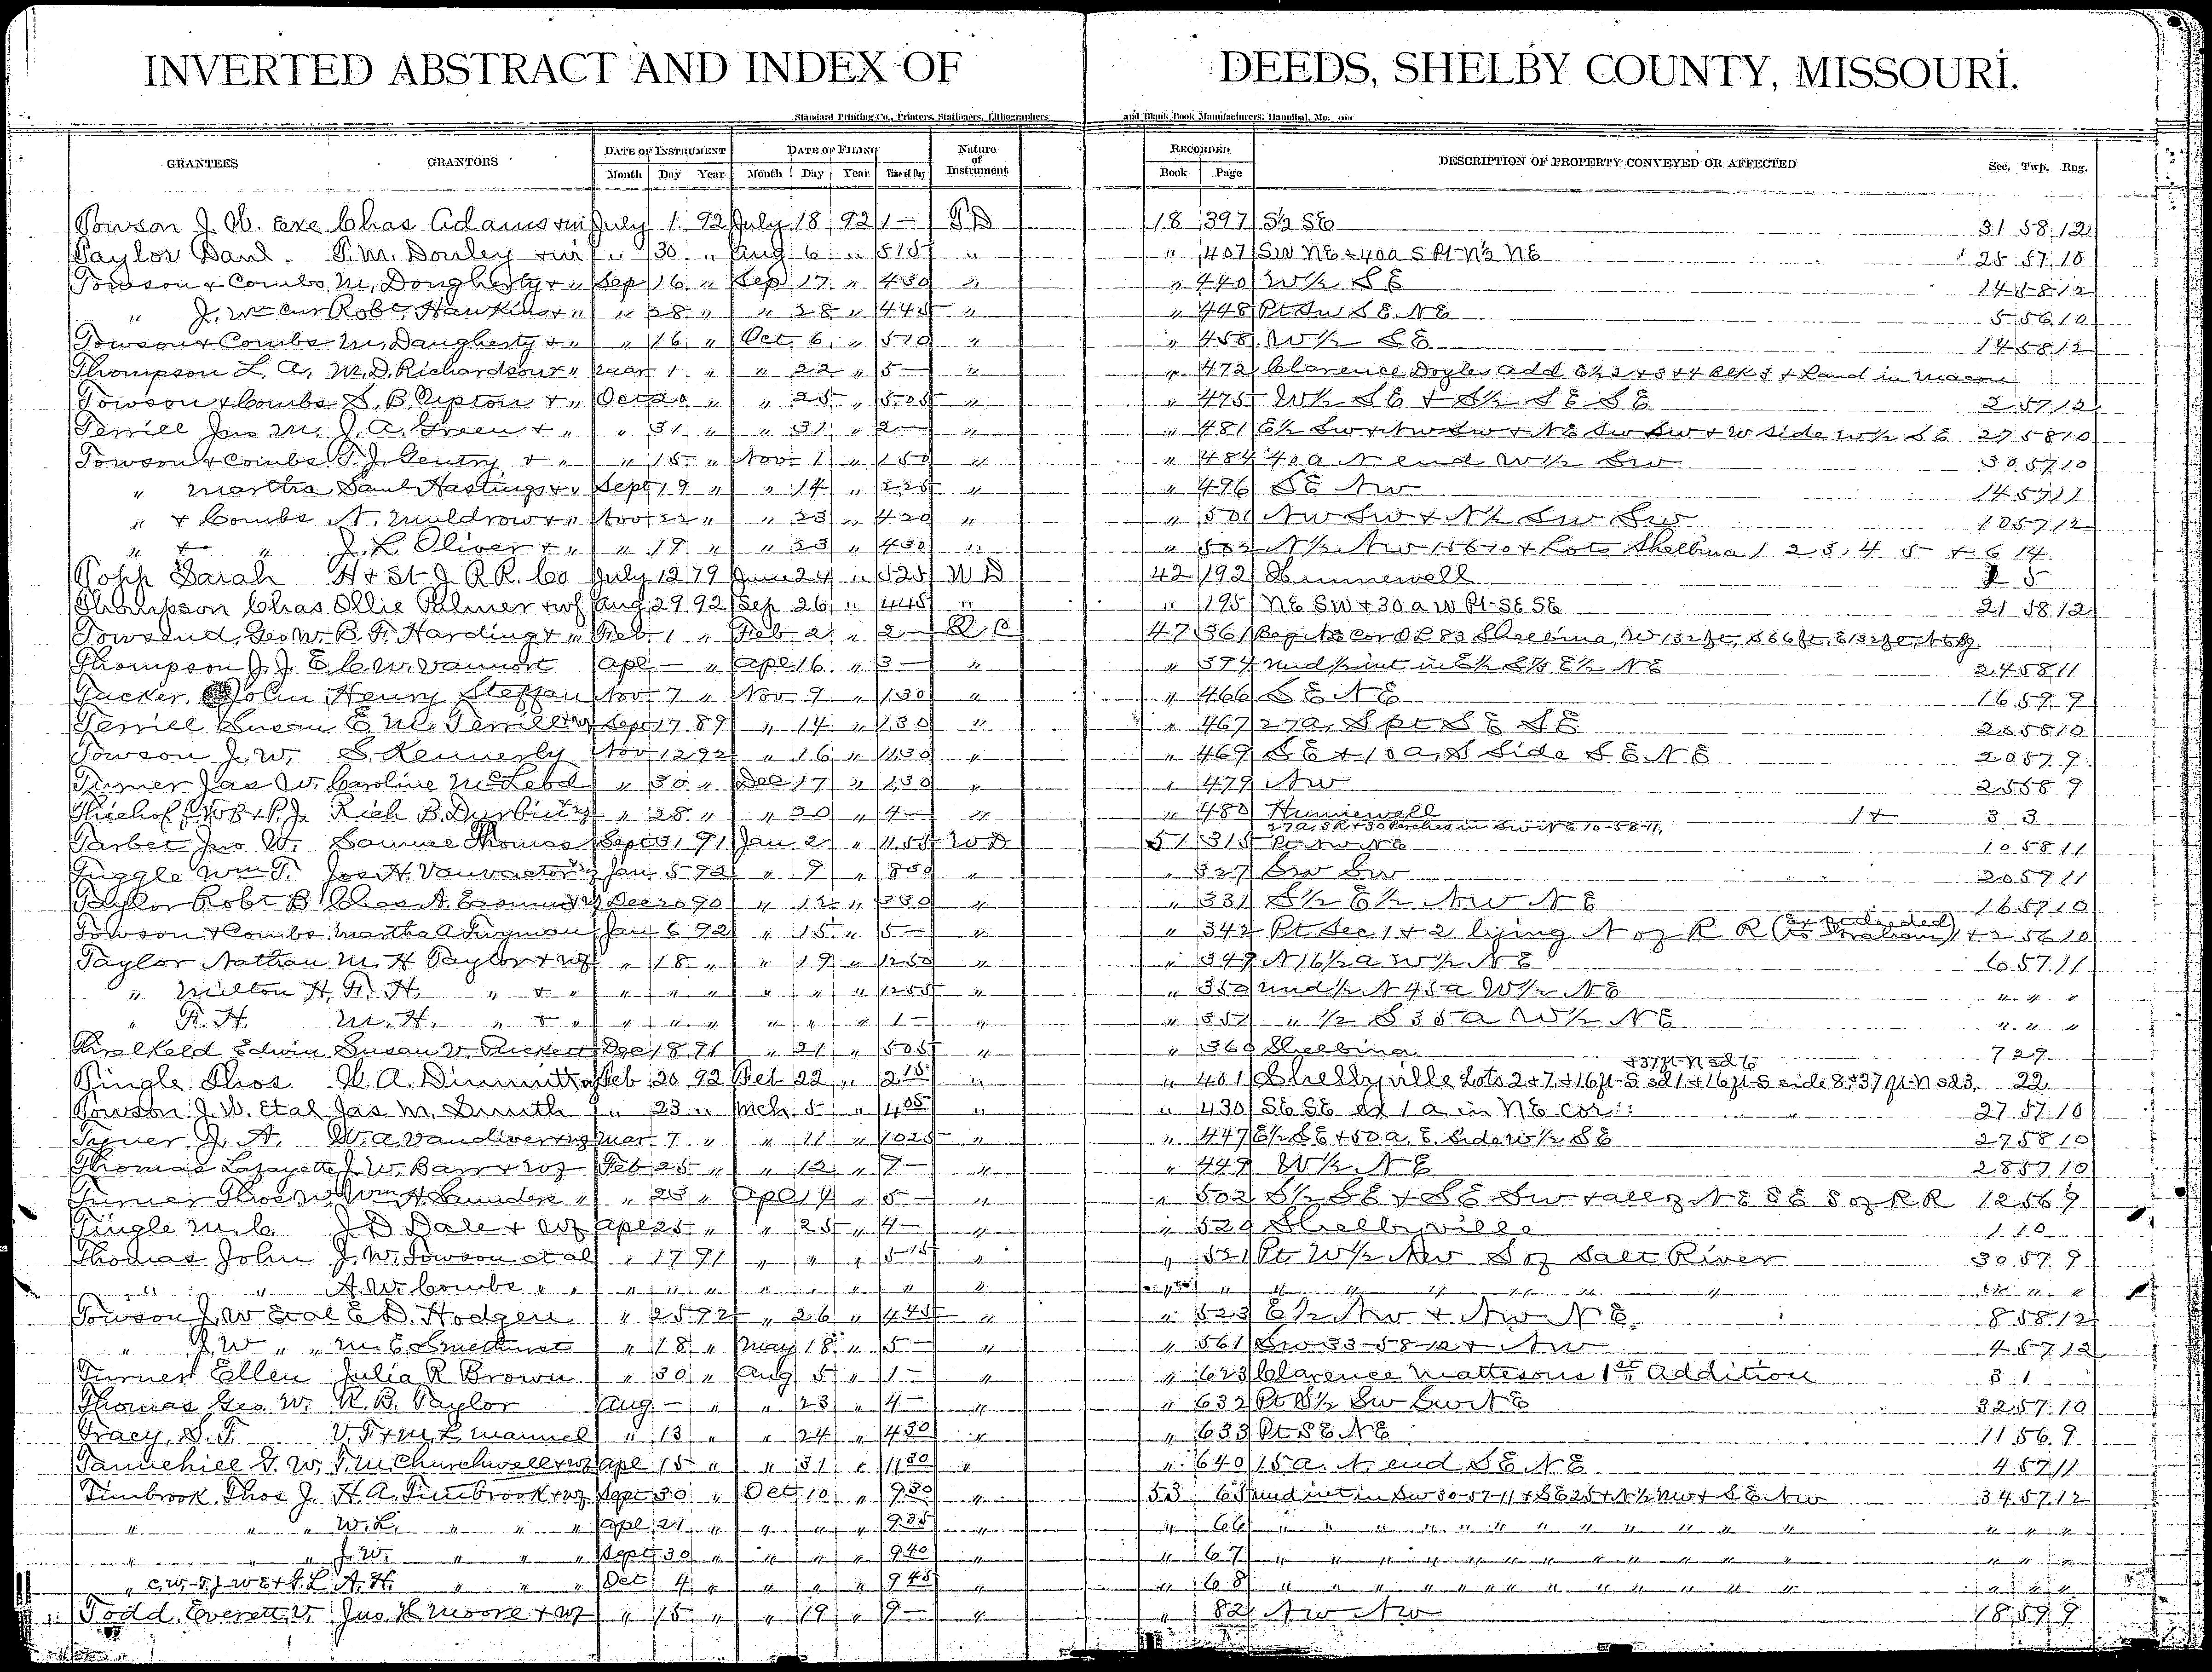 INVERTED ABSTRACT AND INDEX OF DEEDS, SHELBY COUNTY, MISSOURI.
Standard Printing Co., Printers, Stationers, Lithographers and Blank Book Manufacturers, Hannibal, Mo.
GRANTEES GRANTORS DATE OF INSTRUMENT DATE OF FILING Nature of Instrument RECORDED DESCRIPTION OF PROPERTY CONVEYED OR AFFECTED Sec. Twp. Rng.
Month Day Year Month Day Year Time of Day Book Page
Towson J. W. Exe Chas Adams + wi July 1 92 July 18 92 1 — T D 18 397 S½ SE 31 58 12
Taylor Danl T. M. Donley + wi " 30 " Aug 6 " 515 " " 407 SW NE + 40a S Pt N½ NE 25 57 10
Towson + Combs M. Dougherty + " Sep 16 " Sep 17 " 430 " " 440 W½ SE 14 58 12
" J. W. Cur Robt Hawkins + " " 28 " " 28 " 445 " " 448 Pt SW SE NE 5 56 10
Towson + Combs M. Daugherty + " " 16 " Oct 6 " 510 " " 458 W½ SE 14 58 12
Thompson L. A. M. D. Richardson + " Mar 1 " " 22 " 5 — " " 472 Clarence Doyles Add E½ 2 + 3 + 4 Blk 3 + Land in Macon
Towson + Combs S. B. Ripton + " Oct 20 " " 25 " 505 " " 475 W½ SE + S½ SE SE 2 57 12
Terrill Jno M. J. A. Green + " " 31 " " 31 " 2 — " " 481 E½ SW + NW SW + NE SW SW + W side W½ SE 27 58 10
Towson + Combs T. J. Gentry + " " 15 " Nov 1 " 150 " " 484 40a N. end W½ SW 30 57 10
" Martha Saml Hastings + " Sept 19 " " 14 " 225 " " 496 SE NW 14 57 11
" + Combs N. Muldrow + " Nov 22 " " 23 " 420 " " 501 NW SW + N½ SW SW 10 57 12
" + " J. L. Oliver + " " 19 " " 23 " 430 " " 502 N½ NW 15 56 10 + Lots Shelbina 1 2 3, 4 5 + 6 14
Topp Sarah H + St J. R.R. Co July 12 79 June 24 " 525 W D 42 192 Hunnewell 5
Thompson Chas Ollie Palmer + wf Aug 29 92 Sep 26 " 445 " " 195 NE SW + 30 a W Pt SE SE 21 58 12
Towsend, Geo W. B. F. Harding + " Feb 1 " Feb 2 " 2 — Q C 47 361 Beg NE Cor OL 83 Shelbina, W 132 ft, S 66 ft, E 132 ft, N to Beg
Thompson J. J. E. C. W. Vannort Apl — " Apl 16 " 3 — " " 394 und ⅓ int in E½ S½ E½ NE 24 58 11
Tucker, John Henry Steffan Nov 7 " Nov 9 " 130 " " 466 SE NE 16 59 9
Terrill Susan E. M. Terrill + wf Sept 17 89 " 14 " 130 " " 467 27a, S pt SE SE 28 58 10
Towson J. W. S. Kennerly Nov 12 92 " 16 " 1130 " " 469 SE + 10a, S Side SE NE 20 57 9
Turner Jas W. Caroline McLebd " 30 " Dec 17 " 130 " " 479 NW 25 58 9
Rich B. Durbin + wf " 28 " " 20 " 4 — " " 480 Hunnewell 1 + 3 3
Tarbet Jno W. Samuel Thomas Sept 31 91 Jan 2 " 1155 W D 51 315 27a, 3R + 30 Perches in SW NE 10-58-11, Pt NW NE 10 58 11
Tuggle Wm T. Jos H. Vanvactor + wf Jan 5 92 " 9 " 850 " " 327 SW SW 20 59 11
Taylor Robt B Chas A. + wf Dec 20 90 " 12 " 330 " " 331 S½ E½ NW NE 16 57 10
Towson + Combs Martha A Furman Jan 6 92 " 15 " 5 — " " 342 Pt Sec 1 + 2 lying N of R R 1 + 2 56 10
Taylor Nathan M. H Taylor + wf " 18 " " 19 " 1250 " " 349 N 16½ a W½ NE 6 57 11
" Milton H. R. H. " + " " " " " " " 1255 " " 350 und ½ N 45 a W½ NE " " "
" R. H. M. H. " + " " " " " " " 1 — " " 351 " ½ S 35 a W½ NE " " "
Threlkeld Edwin Susan V. Tuckett Dec 18 91 " 21 " 505 " " 360 Shelbina 7 29
Tingle Thos W. A. Dimmitt + wf Feb 20 92 Feb 22 " 215 " " 401 Shelbyville Lots 2 + 7 + 16 ft S sd 1 + 16 ft S side 8 + 37 ft N sd 3, + 37 ft N sd 6 22
Towson J. W. Etal Jas M. Smith " 23 " Mch 5 " 405 " " 430 SE SE ex 1 a in NE cor 27 57 10
Tyner J. A. W. A Vandiver + wf Mar 7 " " 11 " 1025 " " 447 E½ SE + 50 a. E. Side W½ SE 27 58 10
Thomas Lafayette J. W. Barr + wf Feb 25 " " 12 " 9 — " " 449 W½ NE 28 57 10
Turner Thos W Wm H Saunders " " 23 " Apl 14 " 5 — " " 502 S½ SE + SE SW + all of NE SE S of R R 12 56 9
Tingle M. C. J D Dale + wf Apl 25 " " 25 " 4 — " " 520 Shelbyville 1 10
Thomas John J. W. Towson et al " 17 91 " " " 515 " " 521 Pt W½ NW S of Salt River 30 57 9
" " A. W. Combs " " " " " " " " " " " " " " " " " " " " "
Towson J. W Etal E D. Hodgen " 25 92 " 26 " 445 " " 523 E½ NW + NW NE 8 58 12
" J. W " " M. E. Smethurst " 18 " May 18 " 5 — " " 561 SW 33-58-12 + NW 4 57 12
Turner Ellen Julia R Brown " 30 " Aug 5 " 1 — " " 623 Clarence Mattesons 1st Addition 3 1
Thomas Geo W. R. B. Taylor Aug — " " 23 " 4 — " " 632 Pt S½ SW SW NE 32 57 10
Tracy, S. F. V. F + M. L Mannel " 13 " " 24 " 430 " " 633 Pt SE NE 11 56 9
Tannehill G. W. T. M. Churchwell + wf Apl 15 " " 31 " 1130 " " 640 15 a. N. end SE NE 4 57 11
Timbrook Thos J. H. A. Timbrook + wf Sept 30 " Oct 10 " 930 " 53 65 und int in SW 30-57-11 + SE 25 + N½ NW + SE NW 34 57 12
" " " W. L. " " " Apl 21 " " " " 935 " " 66 " " " " " " " " " " " " " " "
" " " J. W. " " " Sept 30 " " " " 940 " " 67 " " " " " " " " " " " " " " "
" C. W. T. J. W E + S. L A. H. " " " Oct 4 " " " " 945 " " 68 " " " " " " " " " " " " " " "
Todd, Everett V. Jno. H Moore + wf " 15 " " 19 " 9 — " " 82 NW NW 18 59 9